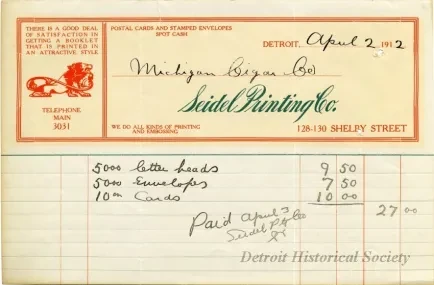 THERE IS A GOOD DEAL
OF SATISFACTION IN
GETTING A BOOKLET
THAT IS PRINTED IN
AN ATTRACTIVE STYLE
TELEPHONE
MAIN
3031
POSTAL CARDS AND STAMPED ENVELOPES
SPOT CASH
DETROIT, April 2 1912
Michigan Cigar Co
Seidel Printing Co.
WE DO ALL KINDS OF PRINTING
AND EMBOSSING
128-130 SHELBY STREET
5000 letter heads 9 50
5000 Envelopes 7 50
Cards 10 00
27 00
Paid April 3
Seidel
Detroit Historical Society